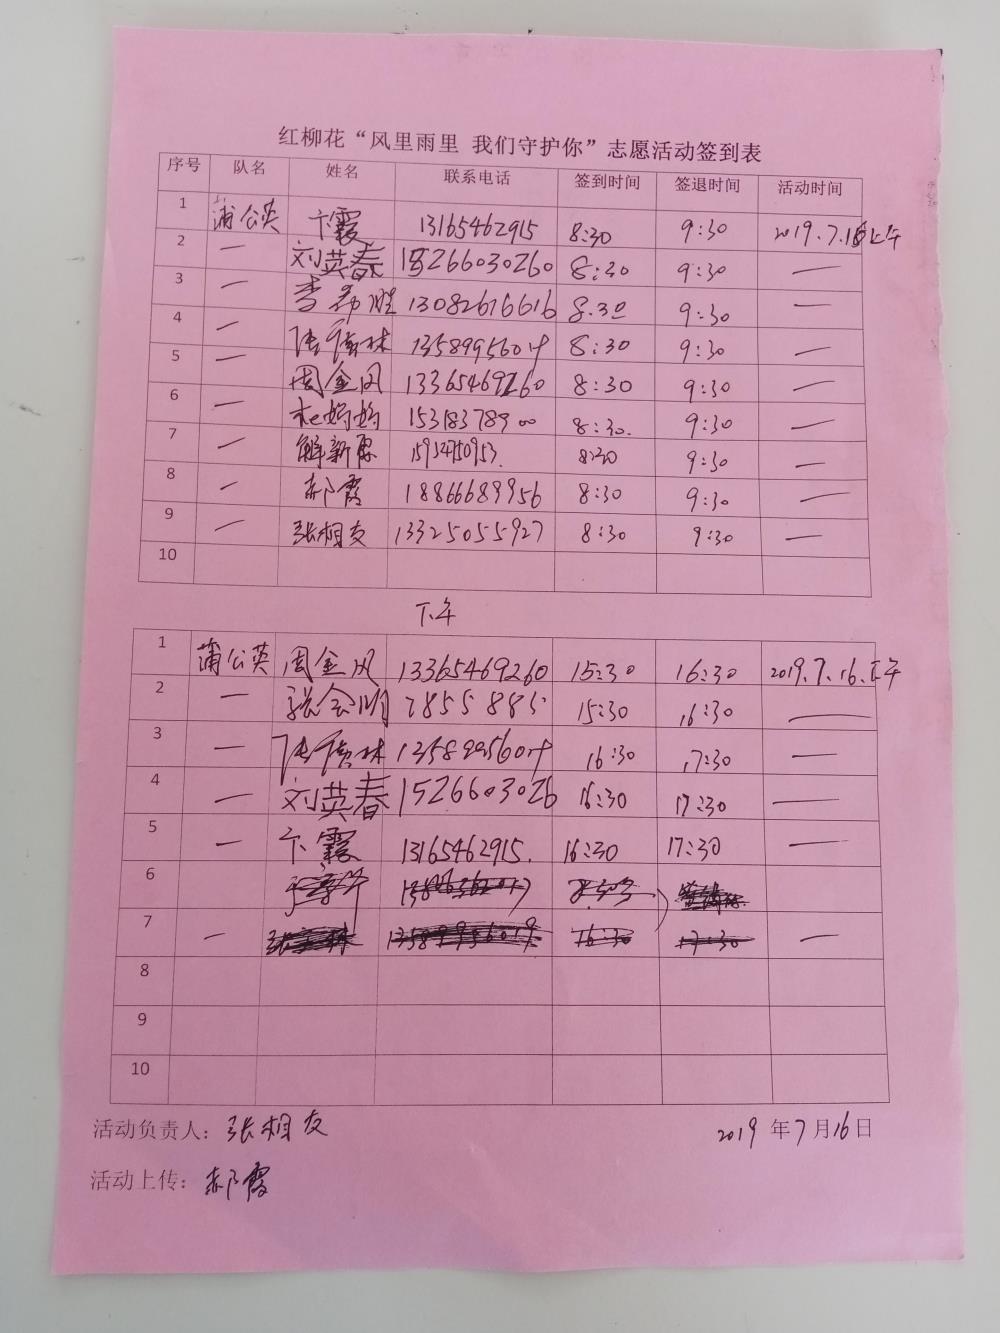 红柳花“风里雨里 我们守护你”志愿活动签到表
序号 队名 姓名 联系电话 签到时间 签退时间 活动时间
1 蒲公英 卞霞 13165462915 8:30 9:30 2019.7.16上午
2 — 刘英春 15266030260 8:30 9:30 —
3 — 李 胜 13082676616 8:30 9:30 —
4 — 8:30 9:30 —
5 — 周金凤 13365469260 8:30 9:30 —
6 — 杜妈妈 15318378900 8:30. 9:30 —
7 — 解新 15954750953. 8:30 9:30 —
8 — 郝霞 18866689956 8:30 9:30 —
9 — 张相友 13325055927 8:30 9:30 —
10
下午
1 蒲公英 周金凤 13365469260 15:30 16:30 2019.7.16.下午
2 — 张会明 7855885 15:30 16:30 —
3 — 16:30 17:30 —
4 — 刘英春 1526603026 16:30 17:30 —
5 — 卞霞 13165462915. 16:30 17:30 —
6
7 — 16:30 17:30 —
8
9
10
活动负责人：张相友 2019年7月16日
活动上传：郝霞